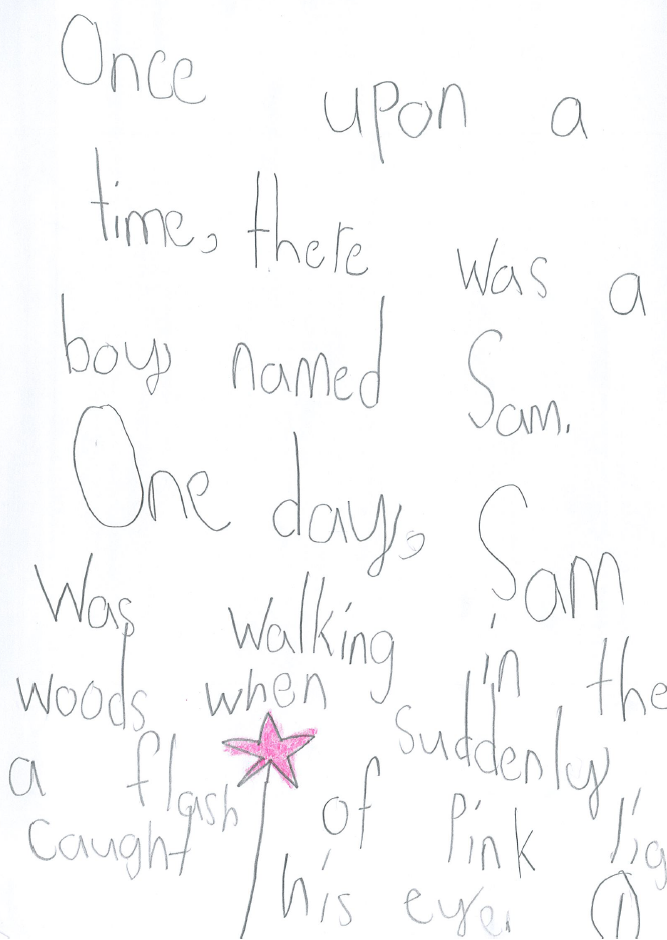 Once upon a
time, there was a
boy named Sam.
One day, Sam
Was walking in the
woods when suddenly,
a flash of Pink lig
caught his eye.
1